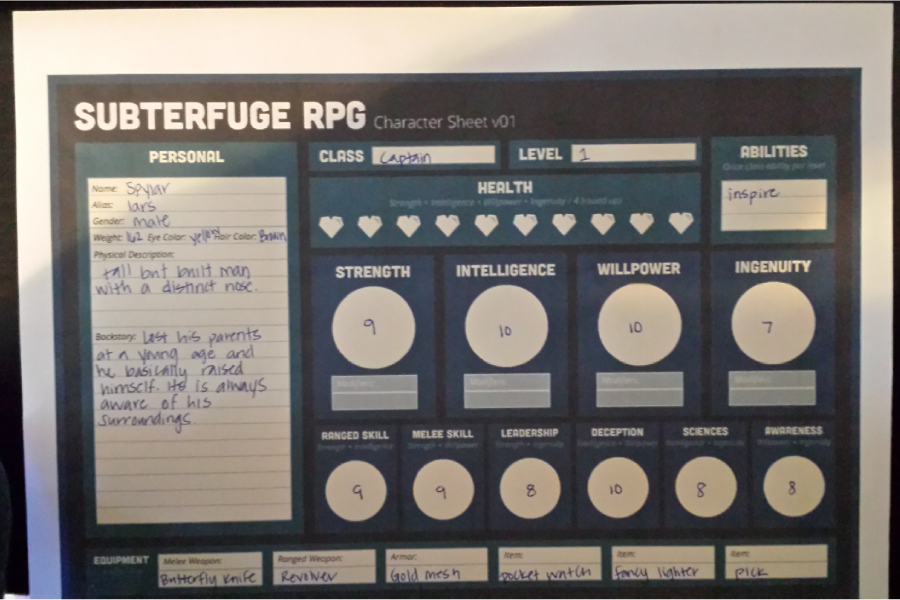 SUBTERFUGE RPG Character Sheet v01
PERSONAL
Name: Spylar
Alias: lars
Gender: male
Weight: 162 Eye Color: yellow Hair Color: Brown
Physical Description:
tall but built man
with a distinct nose.
Backstory: Lost his parents
at a young age and
he basically raised
himself. He is always
aware of his
surroundings.
CLASS captain
LEVEL 1
ABILITIES
Once class ability per level
inspire
HEALTH
Strength + Intelligence + Willpower + Ingenuity / 4 (round up)
STRENGTH
9
Modifiers:
INTELLIGENCE
10
Modifiers:
WILLPOWER
10
Modifiers:
INGENUITY
7
Modifiers:
RANGED SKILL
Strength + Intelligence
9
MELEE SKILL
Strength + Willpower
9
LEADERSHIP
Strength + Ingenuity
8
DECEPTION
10
SCIENCES
8
AWARENESS
Willpower + Ingenuity
8
EQUIPMENT
Melee Weapon:
Butterfly Knife
Ranged Weapon:
Revolver
Armor:
Gold mesh
Item:
pocket watch
Item:
fancy lighter
Item:
pick